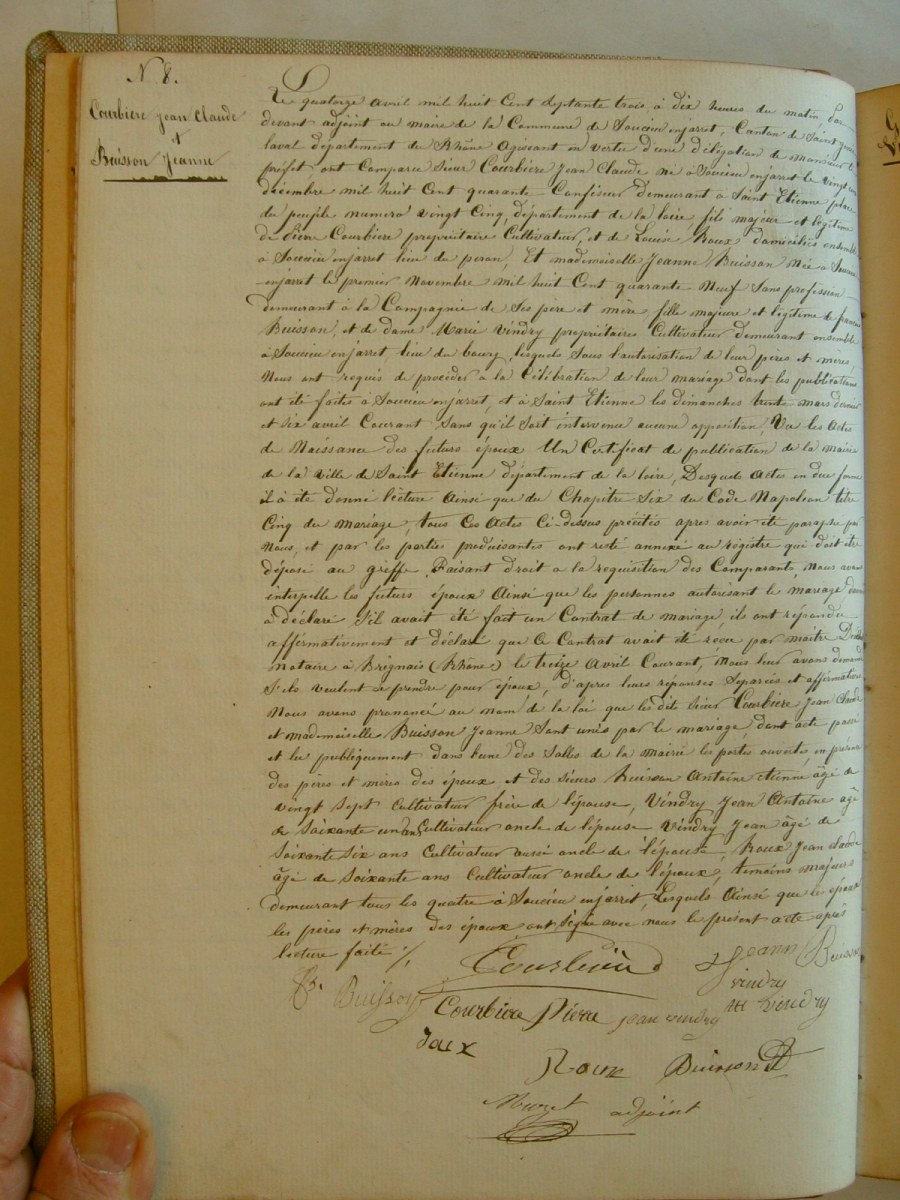 N 8.
Courbière Jean Claude
et
Buisson Jeanne
Le quatorze avril mil huit Cent septante trois à dix heures du matin, par
devant adjoint au maire de la Commune de Soucieu enjarrest, Canton de Saint Genis
laval département du Rhône Agissant en vertu d'une délégation de monsieur le
préfet ont Comparu Sieur Courbière Jean Claude né à Soucieu enjarrest le vingt
décembre mil huit Cent quarante Confiseur demeurant à Saint Etienne place
du peuple numéro vingt Cinq, département de la loire fils majeur et légitime
de Pierre Courbière propriétaire Cultivateur, et de Louise Roux domiciliés ensemble
à Soucieu enjarrest lieu du peron, Et mademoiselle Jeanne Buisson née à Soucieu
enjarrest le premier Novembre mil huit Cent quarante Neuf Sans profession
demeurant à la Compagnie de Ses père et mère fille majeure et légitime de françois
Buisson, et de dame Marie Vindry propriétaires Cultivateur demeurant ensemble
à Soucieu enjarrest lieu du bourg, lesquels Sous l'autorisation de leur pères et mères
Nous ont requis de procéder à la Célébration de leur mariage dont les publications
ont été faites à Soucieu enjarrest, et à Saint Etienne les dimanches trente mars dernier
et six avril Courant Sans qu'il Soit intervenue aucune opposition, Vu les Actes
de Naissance des futurs époux Un Certificat de publication de la mairie
de la ville de Saint Etienne département de la loire, Desquels Actes en due forme
il a été donné lecture Ainsi que du Chapitre Six du Code Napoleon titre
Cinq du mariage, tous Ces Actes Ci-dessus précités après avoir été paraphé par
Nous, et par les parties produisantes ont resté annexé au régistre qui doit être
déposé au greffe, Faisant droit à la requisition des Comparants, Nous avons
interpellé les futurs époux Ainsi que les personnes autorisant le mariage
à déclaré S'il avait été fait un Contrat de mariage, ils ont répondu
affirmativement et déclaré que Ce Contrat avait été reçu par maître
Notaire à Brignais (Rhône) le treize Avril Courant, Nous leur avons demandé
S'ils veulent se prendre pour époux, d'après leurs réponses Séparées et affirmatives
Nous avons prononcé au nom de la loi que les dits Sieur Courbière Jean Claude
et mademoiselle Buisson Jeanne Sont unis par le mariage, dont acte passé
et lu publiquement dans l'une des Salles de la mairie les portes ouvertes en présence
des pères et mères des époux et des sieurs Buisson Antoine etienne âgé de
vingt Sept Cultivateur frère de l'épouse, Vindry Jean Antoine âgé
de Soixante un ans Cultivateur oncle de l'épouse Vindry Jean âgé de
Soixante Six ans Cultivateur aussi oncle de l'épouse, Roux Jean claude
âgé de Soixante ans Cultivateur oncle de l'époux, témoins majeurs
demeurant tous les quatre à Soucieu enjarrest, Lesquels Ainsi que les époux
les pères et mères des époux ont Signé avec nous le présent acte après
lecture faite ./.
Courbière
Jeanne Buisson
vindry
Buisson
Courbière Pierre
jean vindry
vindry
Roux
Buisson
Muzet adjoint